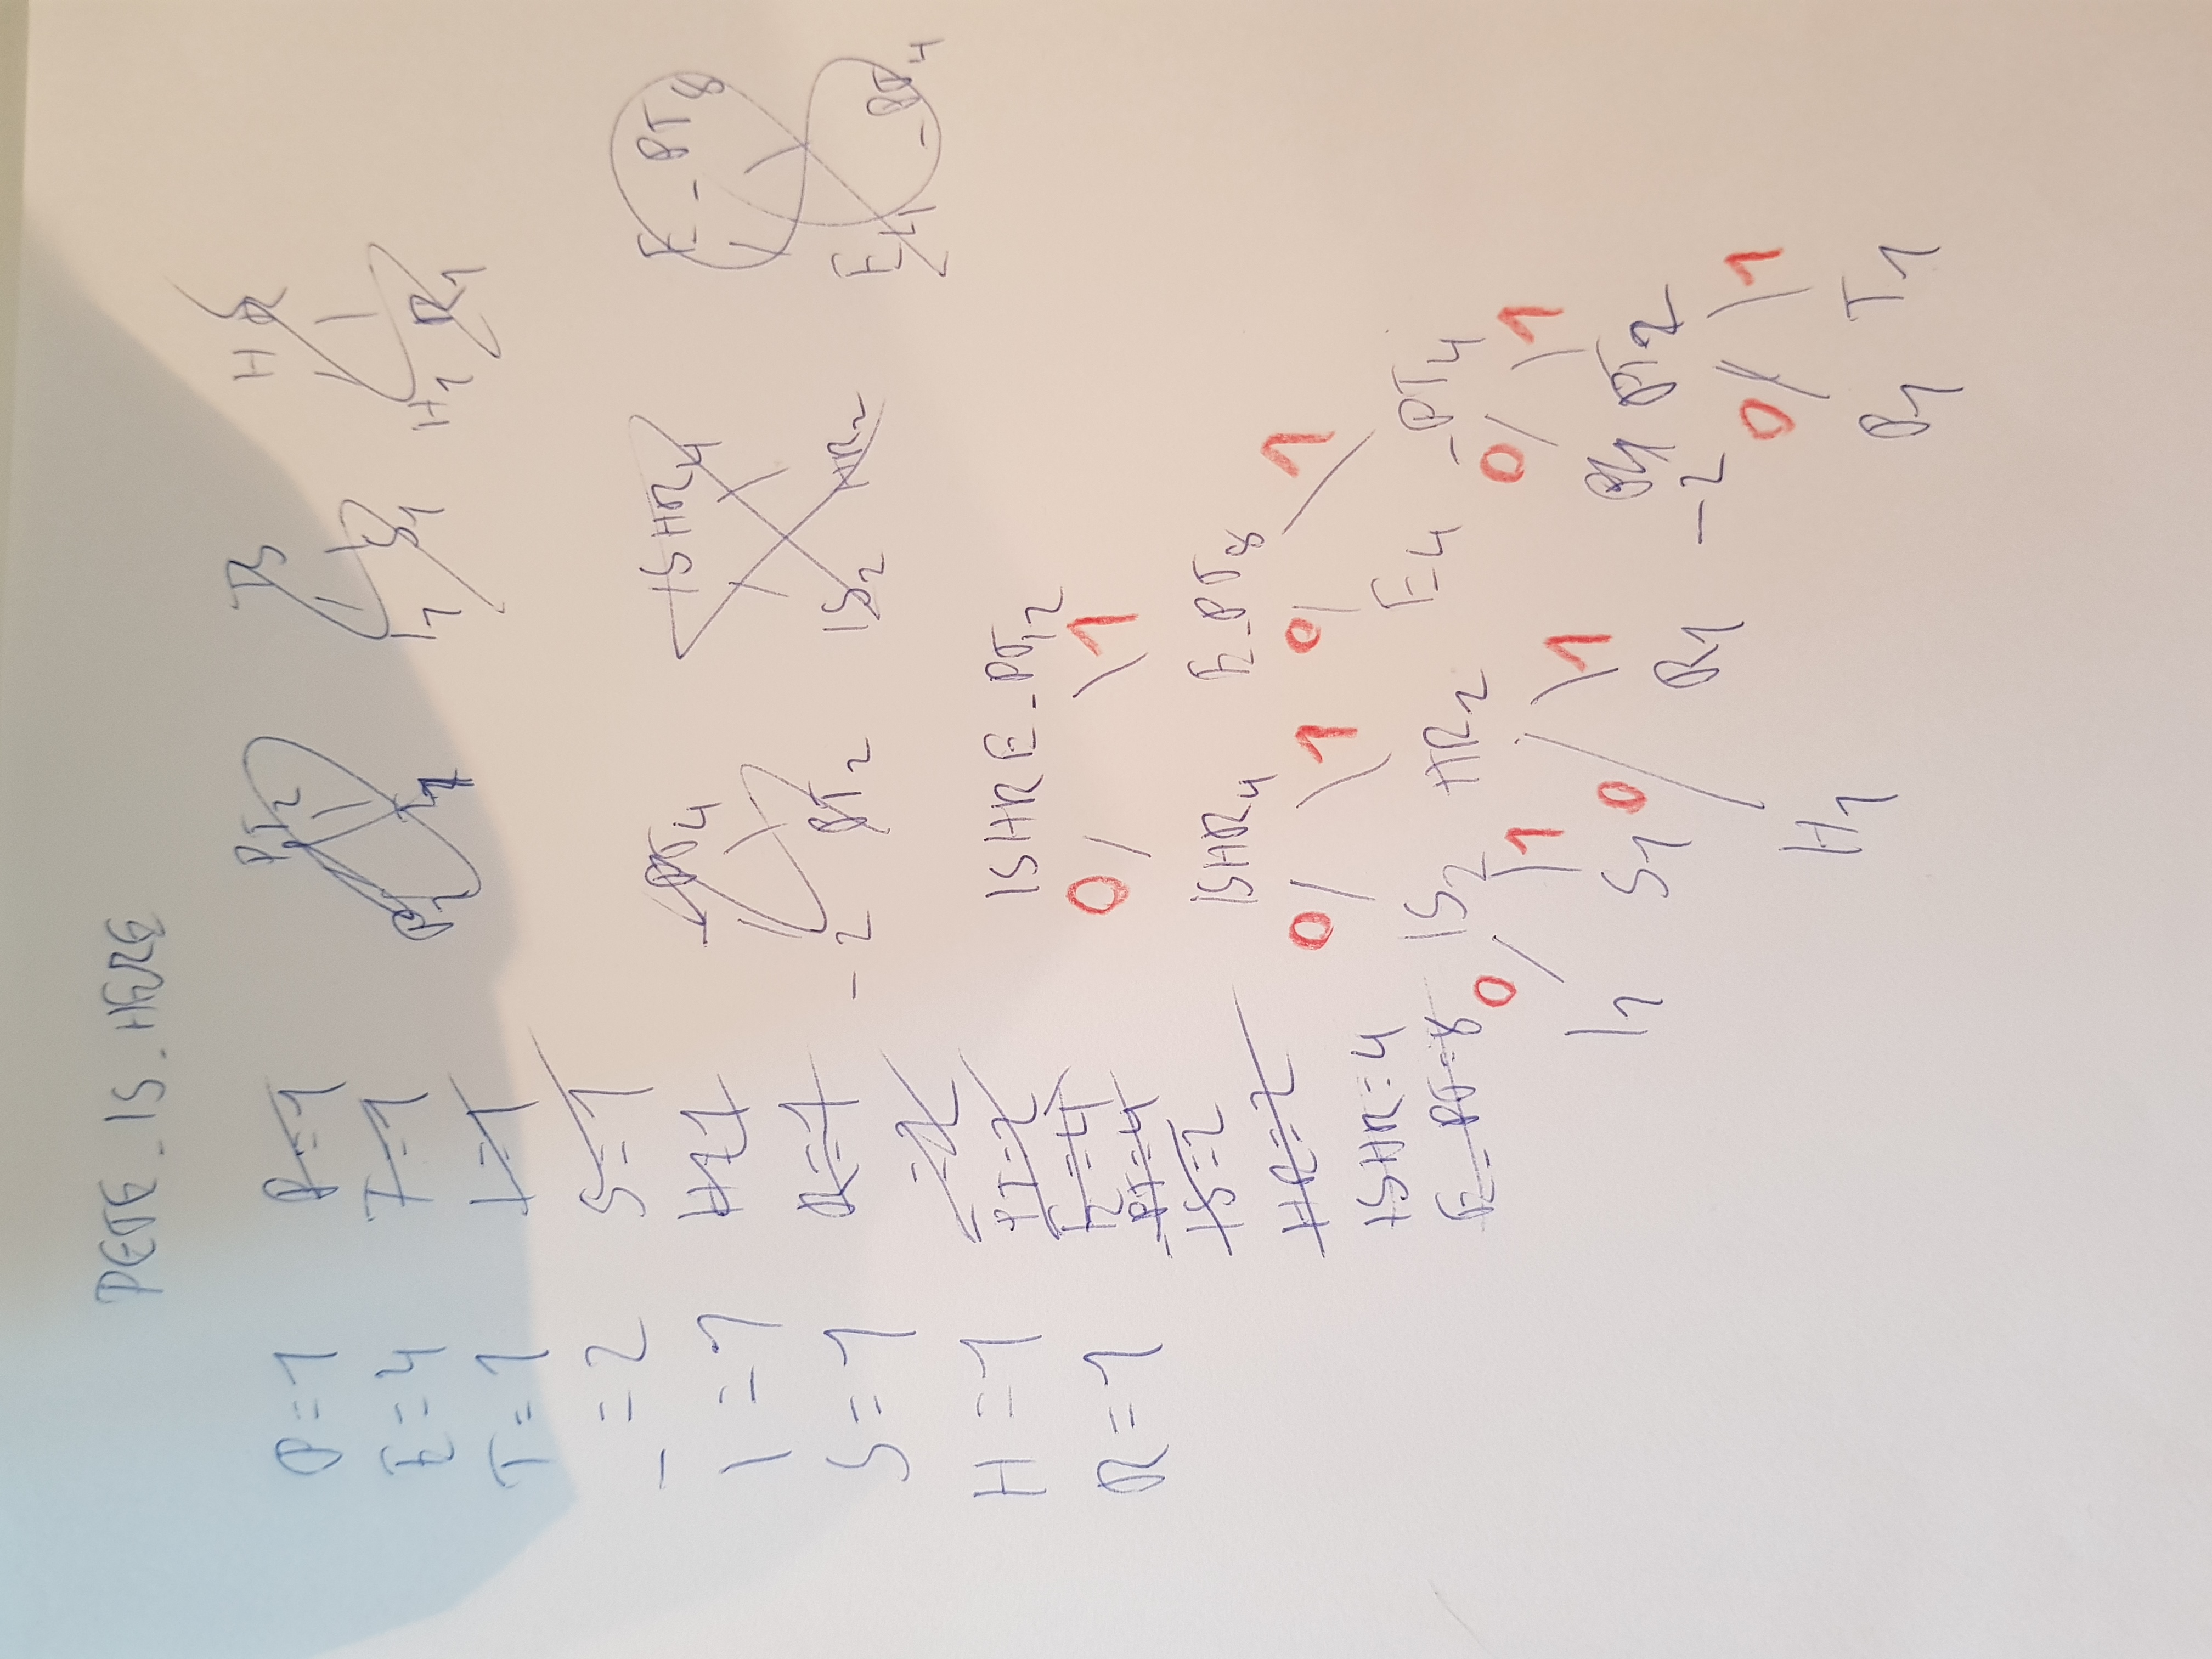 PETE_IS_HERE
P=1
E=4
T=1
_=2
I=1
S=1
H=1
R=1
P=1
T=1
I=1
S=1
H=1
R=1
_=2
PT=2
E=4
_PT=4
IS=2
HR=2
ISHR=4
E_PT=8
PT2
P1 T1
IS
I1 S1
HR
H1 R1
_PT4
_2 PT2
ISHR4
IS2 HR2
E_PT8
E4 _PT4
ISHRE_PT12
0 1
ISHR4 E_PT8
0 1 0 1
IS2 HR2 E4 _PT4
0 1 0 1 0 1
I1 S1 R1 _2 PT2
0 1
H1 P1 T1